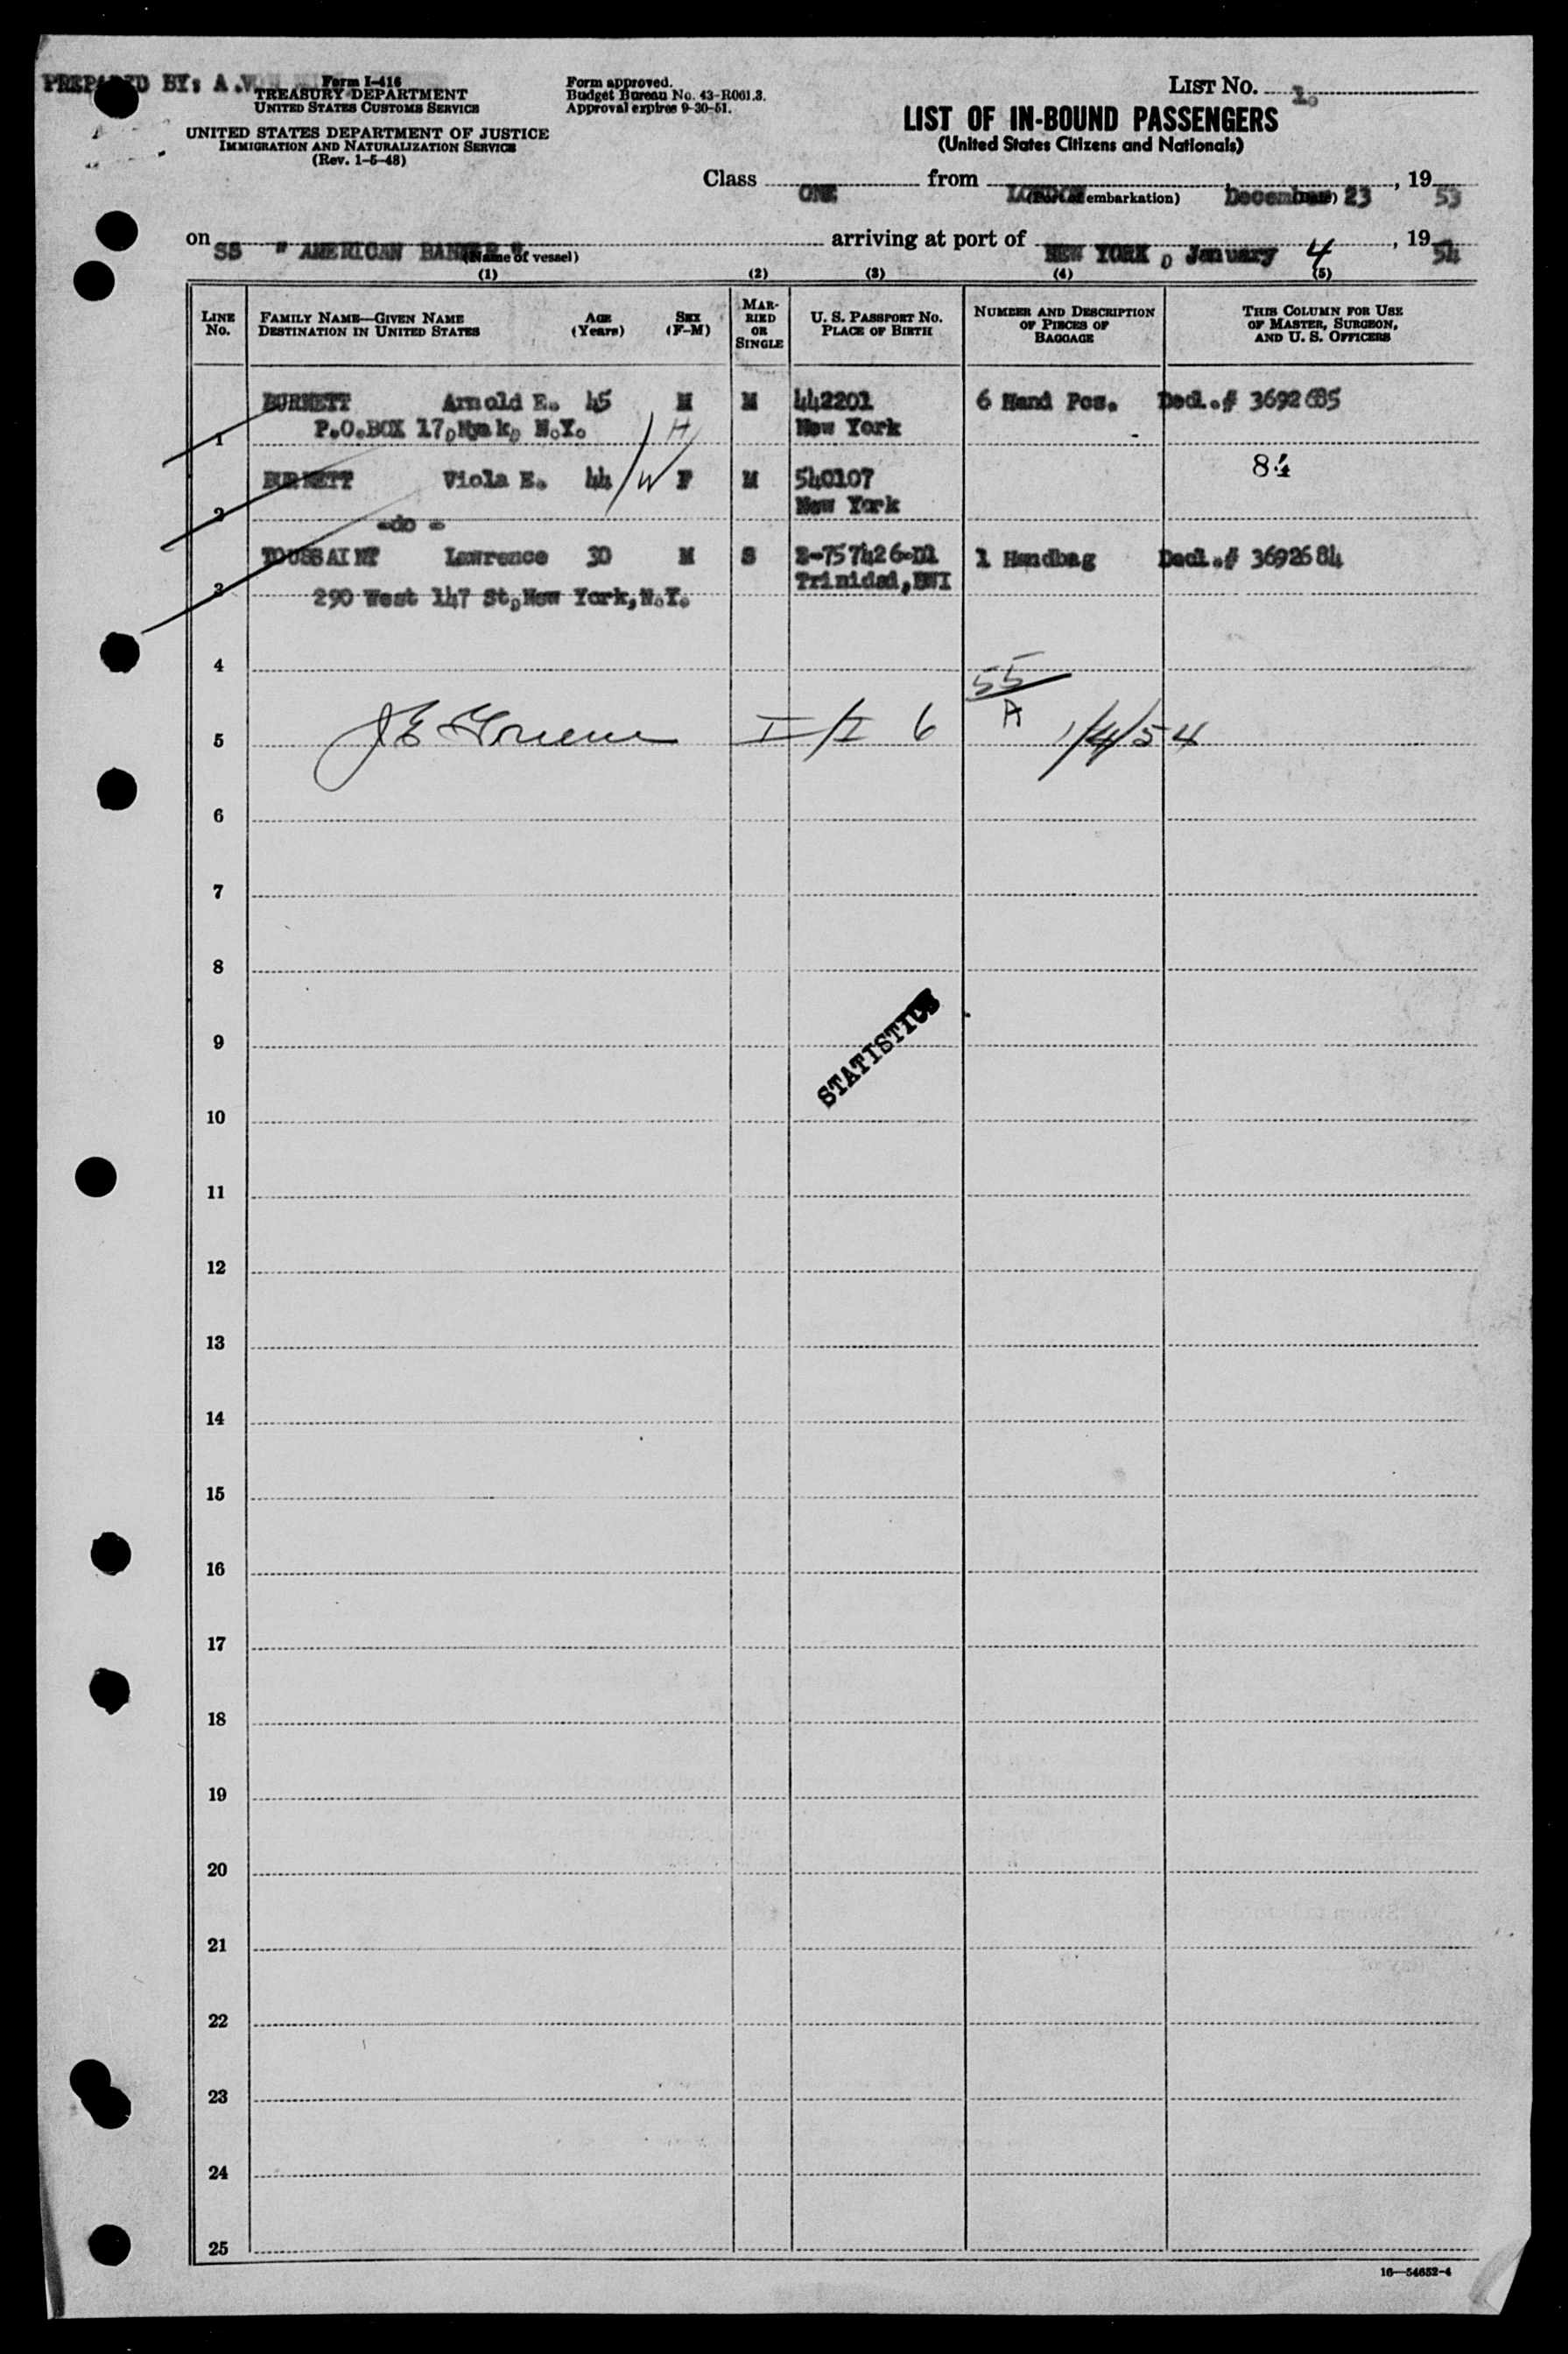 PREPARED BY: A.V
Form I-416
TREASURY DEPARTMENT
UNITED STATES CUSTOMS SERVICE
UNITED STATES DEPARTMENT OF JUSTICE
IMMIGRATION AND NATURALIZATION SERVICE
(Rev. 1-5-48)
Form approved.
Budget Bureau No. 43-R061.3.
Approval expires 9-30-51.
LIST NO. 1.
LIST OF IN-BOUND PASSENGERS
(United States Citizens and Nationals)
Class ONE from LONDON December 23, 1953
embarkation)
on SS " AMERICAN BANKER " arriving at port of NEW YORK, January 4, 1954
(Name of vessel)
(1) (2) (3) (4) (5)
LINE NO.
FAMILY NAME—GIVEN NAME
DESTINATION IN UNITED STATES
AGE
(Years)
SEX
(F-M)
MAR-
RIED
OR
SINGLE
U. S. PASSPORT NO.
PLACE OF BIRTH
NUMBER AND DESCRIPTION
OF PIECES OF
BAGGAGE
THIS COLUMN FOR USE
OF MASTER, SURGEON,
AND U. S. OFFICERS
BURNETT Arnold E. 45 M M 442201 6 Hand Pcs. Decl.# 3692685
1 P.O.BOX 17, Nyak, N.Y. H New York
BURNETT Viola E. 44 W F M 540107 84
2 -do - New York
TOUSSAINT Lawrence 30 M S Z-757426-D1 1 Handbag Decl.# 3692684
3 290 West 147 St, New York, N.Y. Trinidad, BWI
4
55
A
5 I/I 6 1/4/54
6
7
8
STATISTICS
9
10
11
12
13
14
15
16
17
18
19
20
21
22
23
24
25
16—54652-4